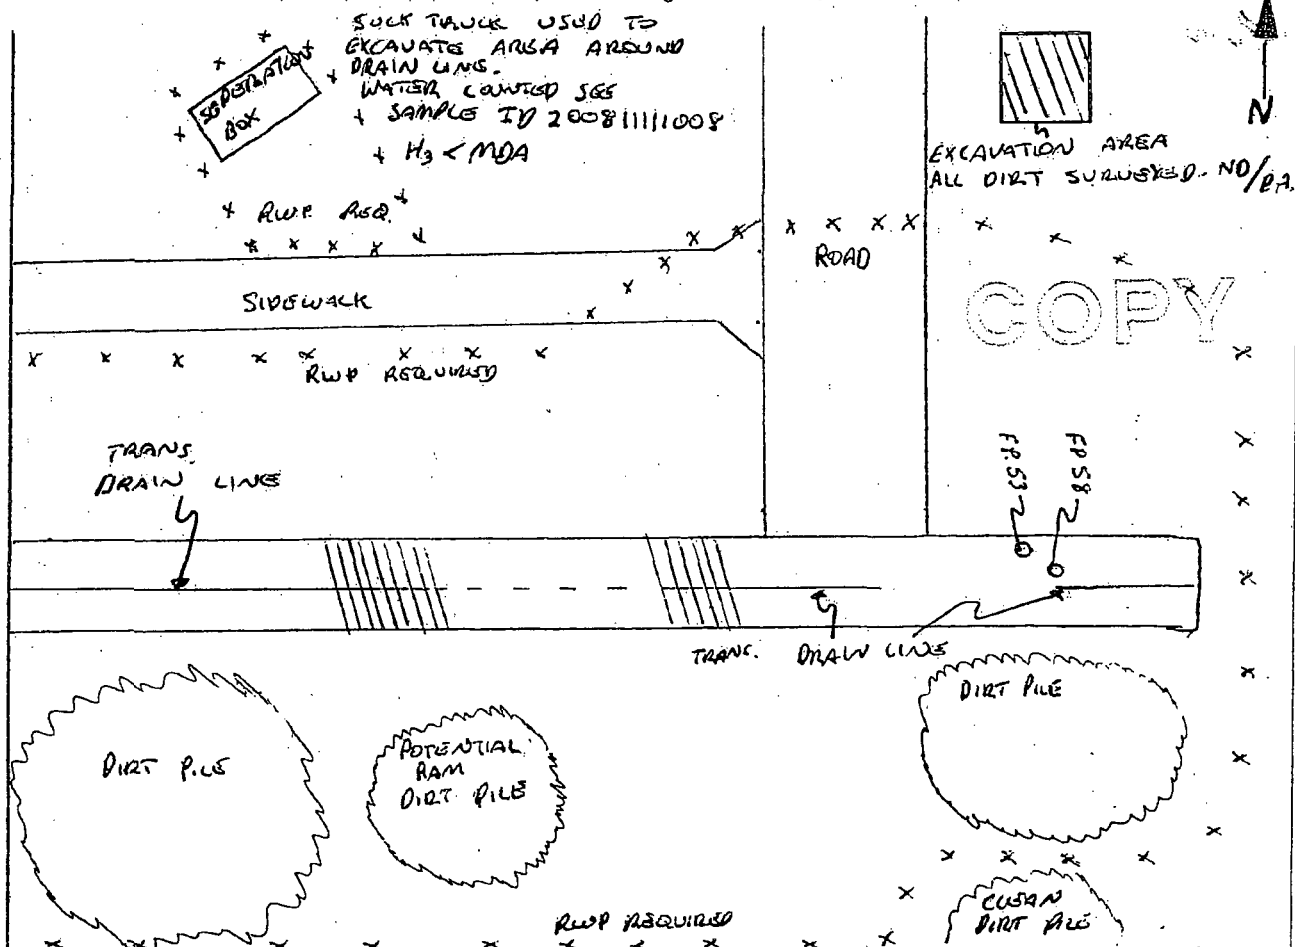 SUCK TRUCK USED TO
EXCAVATE AREA AROUND
DRAIN LINE.
WATER COUNTED SEE
SAMPLE ID 200811111008
H3 < MDA
SEPERATION
BOX
N
EXCAVATION AREA
ALL DIRT SURVEYED. ND/P.A.
RWP REQ.
ROAD
SIDEWALK
COPY
RWP REQUIRED
TRANS.
DRAIN LINE
FP.53
FP.58
TRANS. DRAIN LINE
DIRT PILE
DIRT PILE
POTENTIAL
RAM
DIRT PILE
CLEAN
DIRT PILE
RWP REQUIRED